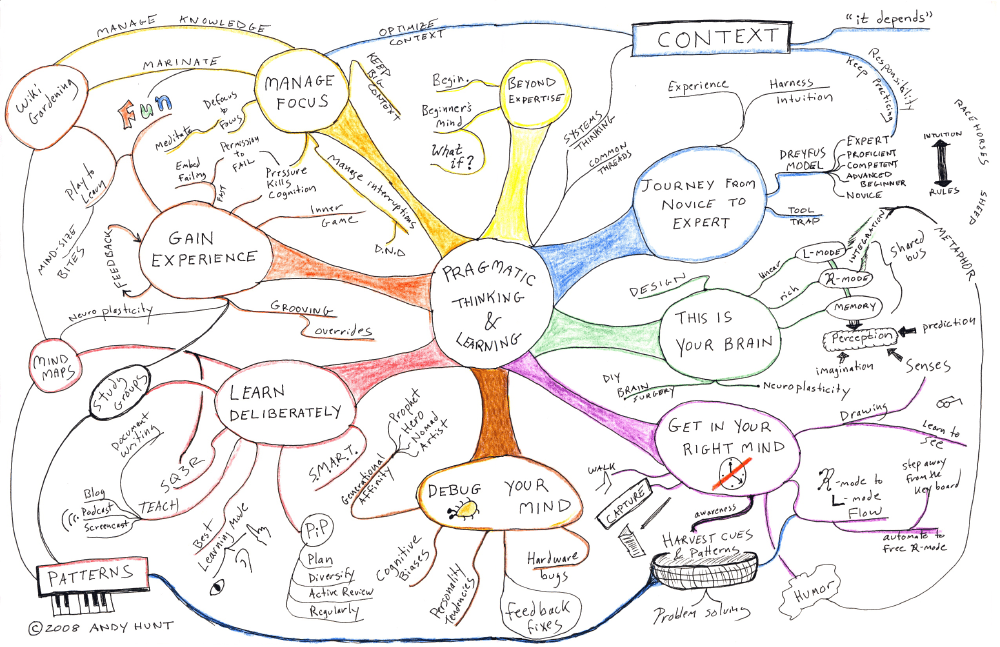 MANAGE KNOWLEDGE
MARINATE
Wiki
Gardening
MANAGE
FOCUS
Fun
Defocus
to
Focus
Meditate
Permission
to
FAIL
Embed
Failing
Pressure
Kills
Cognition
Manage interruptions
D.N.D
KEEP
BIG
CONTEXT
OPTIMIZE
CONTEXT
CONTEXT
"it depends"
Responsibility
Keep Practicing
Begin.
Beginner's
mind
What
if?
BEYOND
EXPERTISE
SYSTEMS
THINKING
COMMON
THREADS
Experience
Harness
Intuition
JOURNEY FROM
NOVICE TO
EXPERT
DREYFUS
MODEL
EXPERT
PROFICIENT
COMPETENT
ADVANCED
BEGINNER
NOVICE
TOOL
TRAP
RACEHORSES
INTUITION
RULES
SHEEP
METAPHOR
Play to
Learn
MIND-SIZE
BITES
FEEDBACK
GAIN
EXPERIENCE
Inner
Game
GROOVING
overrides
Neuroplasticity
PRAGMATIC
THINKING
&
LEARNING
DESIGN
THIS IS
YOUR BRAIN
linear
L-MODE
rich
R-MODE
INTEGRATION
Shared
bus
MEMORY
Perception
prediction
imagination
Senses
DIY
BRAIN
SURGERY
Neuroplasticity
MIND
MAPS
Study
Groups
LEARN
DELIBERATELY
Document
Writing
SQ3R
TEACH
Blog
Podcast
Screencast
Best
Learning Mode
PiP
Plan
Diversify
Active Review
Regularly
S.M.A.R.T.
Generational
Affinity
Prophet
Hero
Nomad
Artist
DEBUG YOUR
MIND
Cognitive
Biases
Personality
Tendencies
Hardware
bugs
feedback
fixes
GET IN YOUR
RIGHT MIND
WALK
CAPTURE
awareness
HARVEST CUES
& Patterns
Problem solving
Drawing
Learn to
See
R-mode to
L-mode
Flow
step away
from the
keyboard
automate to
free R-mode
HUMOR
PATTERNS
© 2008 ANDY HUNT